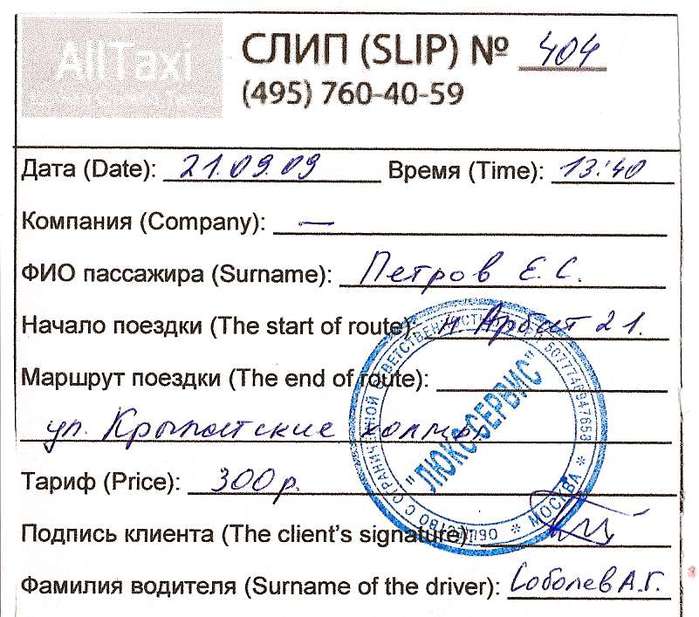 AllTaxi
СЛИП (SLIP) № 404
(495) 760-40-59
Дата (Date): 21.09.09 Время (Time): 13:40
Компания (Company): —
ФИО пассажира (Surname): Петров Е.С.
Начало поездки (The start of route): н. Арбат 21.
Маршрут поездки (The end of route):
ул. Крылатские холмы
Тариф (Price): 300р.
Подпись клиента (The client's signature):
Фамилия водителя (Surname of the driver): Соболев А.Г.
ОБЩЕСТВО С ОГРАНИЧЕННОЙ ОТВЕТСТВЕННОСТЬЮ
"ЛЮКС СЕРВИС"
* МОСКВА *